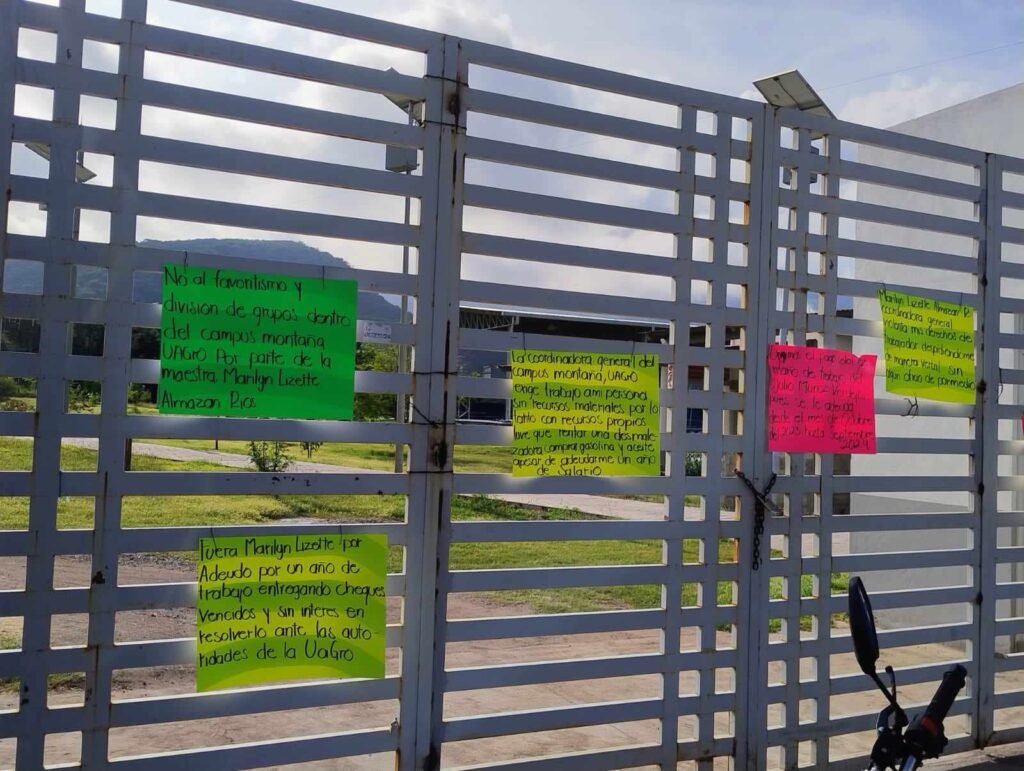 No al favoritismo y
division de grupos dentro
del campus montaña
UAGRO Por parte de la
maestra. Marilyn Lizette
Almazan Rios
La coordinadora general del
campus montaña, UAGRO
exige trabajo ami persona
sin recursos materiales, por lo
tanto con recursos propios
tuve que rentar una desmale
zadora, comprar gasolina y aceite
apesar de adeudarme un año
de Salario
el pago del
Julio Muñoz
pues se le adeuda
desde el mes de Octubre
de 2023 hasta Septiembre
2024
Marilyn Lizette Almazan R.
coordinadora general
violenta mis derechos de
trabajador despidiendome
de manera verbal sin
algun oficio de por medio
Fuera Marilyn Lizette por
Adeudo por un año de
trabajo entregando cheques
vencidos y sin interes en
resolverlo ante las auto
ridades de la UaGro